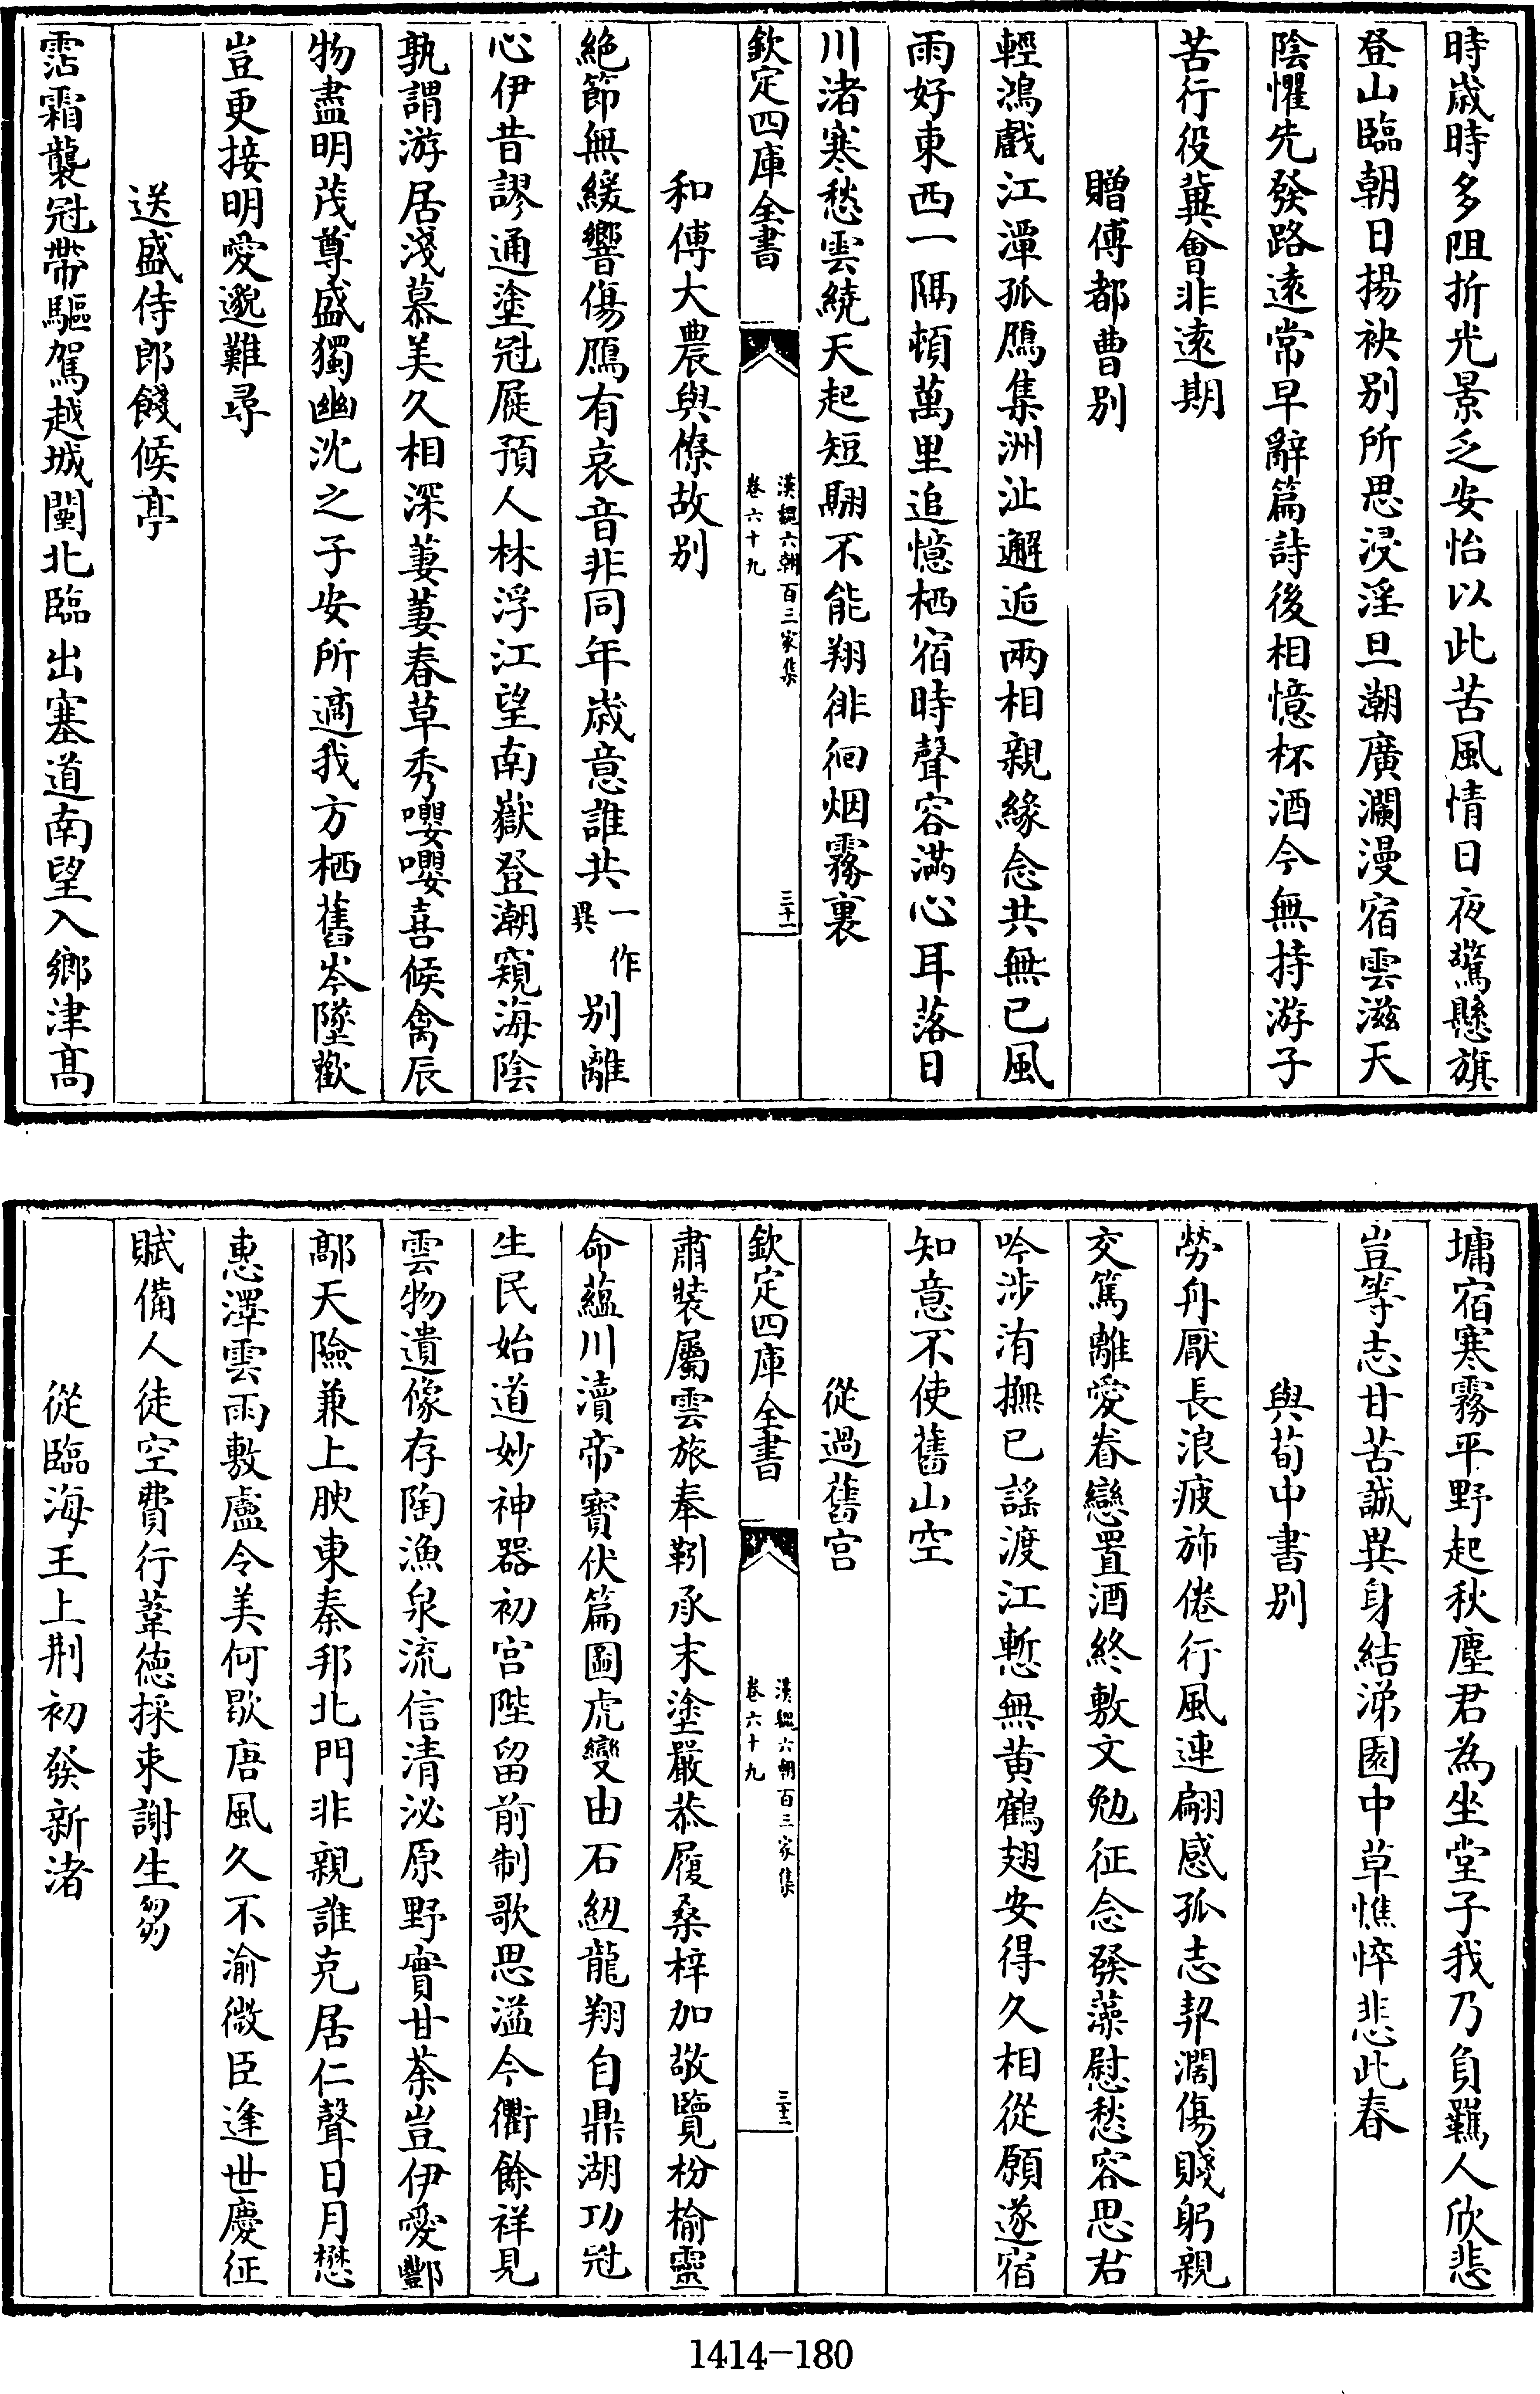 時嵗時多阻折光景乏安怡以此苦風情日夜驚懸旗
登山臨朝日揚袂别所思浸淫旦潮廣瀾漫宿雲滋天
陰懼先發路逺常早辭篇詩後相憶杯酒今無持游子
苦行役冀㑹非逺期
贈傅都曹别
輕鴻戲江潭孤鴈集洲沚邂逅兩相親緣念共無已風
雨好東西一隅頓萬里追憶栖宿時聲容滿心耳落日
川渚寒愁雲繞天起短翮不能翔徘徊烟霧裏
欽定四庫全書
漢魏六朝百三家集
卷六十九
三十一
和傅大農與僚故别
絶節無緩響傷鴈有哀音非同年嵗意誰共一作異别離
心伊昔謬通塗冠屣預人林浮江望南嶽登潮窺海陰
孰謂游居淺慕美久相深萋萋春草秀嚶嚶喜候禽辰
物盡明茂尊盛獨幽沈之子安所適我方栖舊岑墜歡
豈更接明愛邈難尋
送盛侍郎餞候亭
霑霜襲冠帶驅駕越城闉北臨出塞道南望入鄉津髙
墉宿寒霧平野起秋塵君為坐堂子我乃負羈人欣悲
豈等志甘苦誠異身結涕園中草憔悴悲此春
與荀中書别
勞舟厭長浪疲斾倦行風連翩感孤志契濶傷賤躬親
交篤離愛眷戀置酒終敷文勉征念發藻慰愁容思君
吟涉洧撫已謡渡江慙無黄鶴翅安得久相從願遂宿
知意不使舊山空
從過舊宫
欽定四庫全書
漢魏六朝百三家集
卷六十九
三十二
肅裝屬雲旅奉靷承末塗嚴恭履桑梓加敬覽枌榆靈
命藴川瀆帝寳伏篇圖虎變由石紐龍翔自鼎湖功冠
生民始道妙神器初宫陛留前制歌思溢今衢餘祥見
雲物遺像存陶漁泉流信清泌原野實甘荼豈伊愛酆
鄗天險兼上腴東秦邦北門非親誰克居仁聲日月懋
惠澤雲雨敷盧令美何歇唐風久不渝微臣逢世慶征
賦備人徒空費行葦徳採束謝生芻
從臨海王上荆初發新渚
1414-180